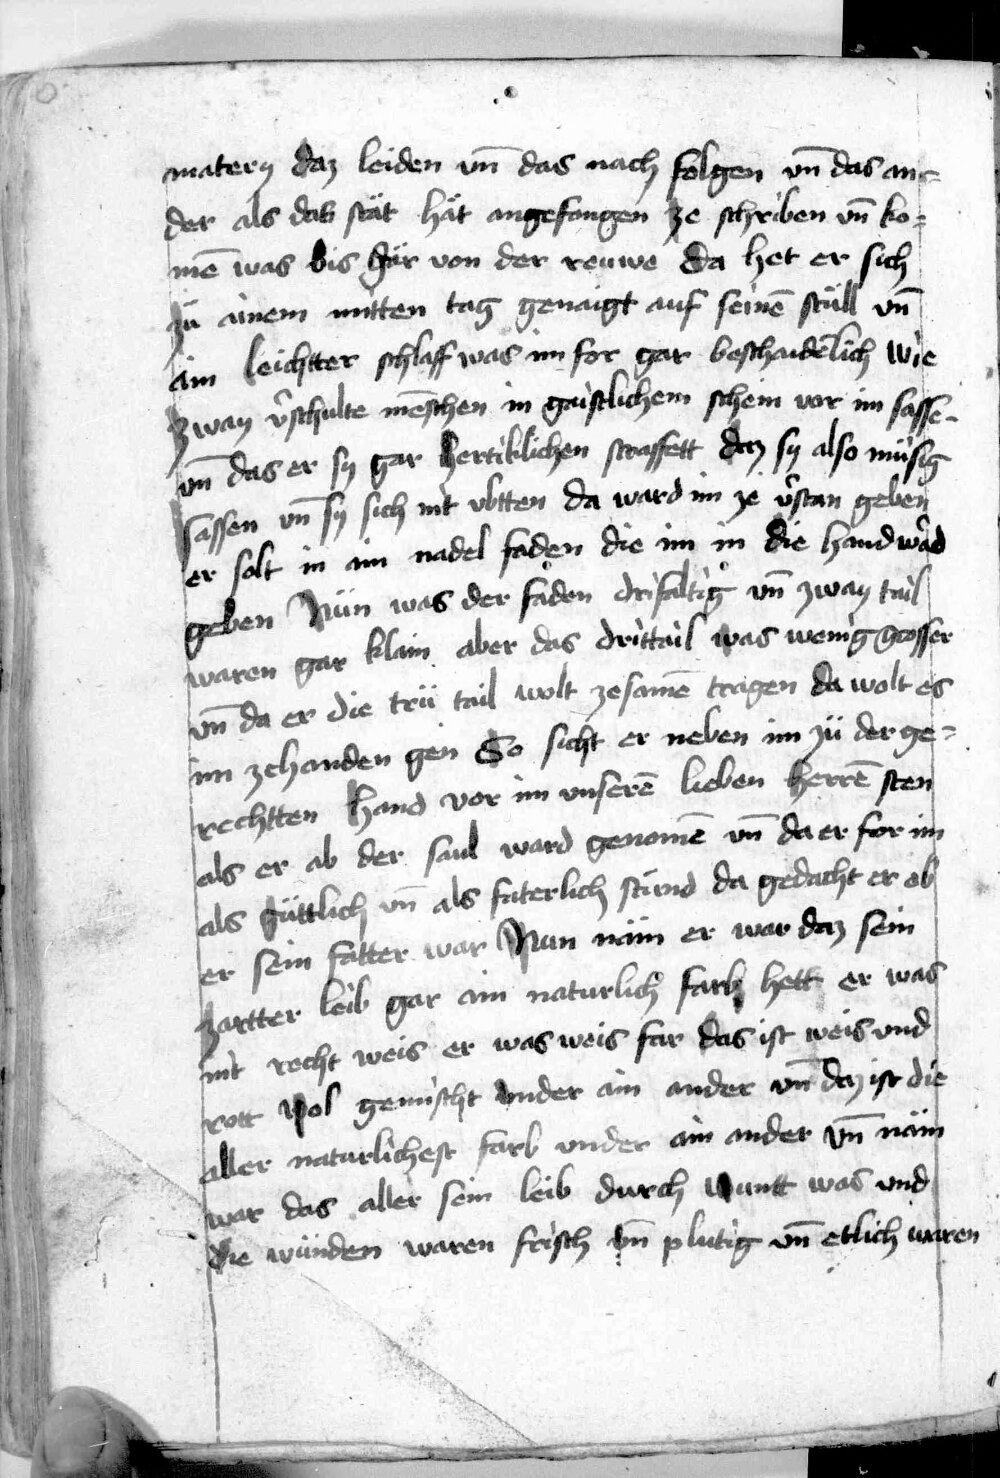 matery daz leiden vn̄ das nach folgen vn̄ das an=
der als das stät hät angefangen ze schriben vn̄ ko=
mē was bis här von der reuwe da het er sich
zü ainem mitten tag genaigt auf seinē stüll vn̄
ain leichtter schlaff was im for gar beschaidēlich wie
zway v̄schulte mēschen in gaistlichem schein vor im sasse-
vn̄ das er sy gar hertiklichen straffett daz sy also müsig
sassen vn̄ sy sich nit vbtten da ward im ze v̄stan geben
er solt in ain nadel faden die im in die hand wād
geben Nün was der faden drifaltig vn̄ zway tail
waren gar klain aber das drittail was wenig grosser
vn̄ da er die trü tail wolt zesamē tragen da wolt es
im zehanden gen So sicht er neben im zü der ge=
rechtten hand vor im vnserē lieben herrē sten
als er ab der saul ward genomē vn̄ da er for im
als güttlich vn̄ als faterlich stünd da gedacht er ob
er sein fatter war Nun näm er war daz sein
zartter leib gar ain naturlich farb hett er was
nit recht weis er was weis far das ist weis vnd
rott wol gemischt vnder ain ander vn̄ daz ist die
aller naturlichest farb vnder ain ander vn̄ näm
war das aller sein leib durch wuntt was vnd
die wünden waren frisch vn̄ plutig vn̄ etlich waren